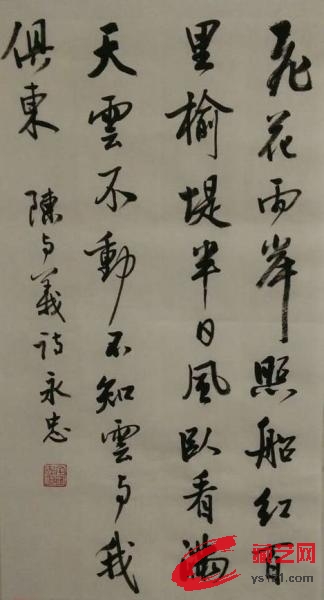 飛花兩岸照船紅百
里榆堤半日風臥看滿
天雲不動不知雲与我
俱東
陳与義詩永忠
藏艺网